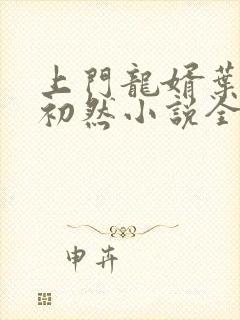 上門龍婿葉
初然小說全
申卉